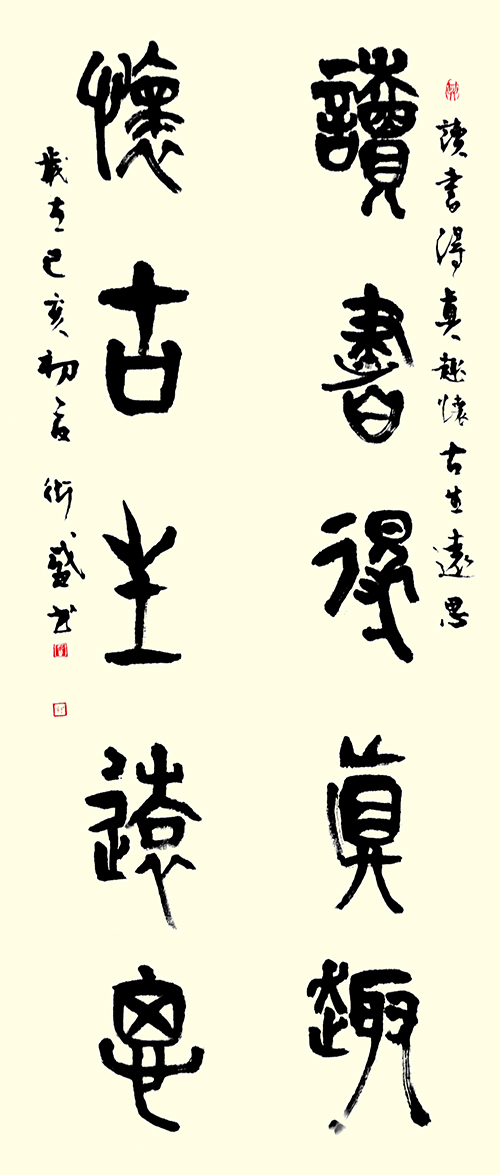 讀書得真趣懷古生遠思
讀書得真趣
懷古生遠思
歲在己亥初夏衛盛書